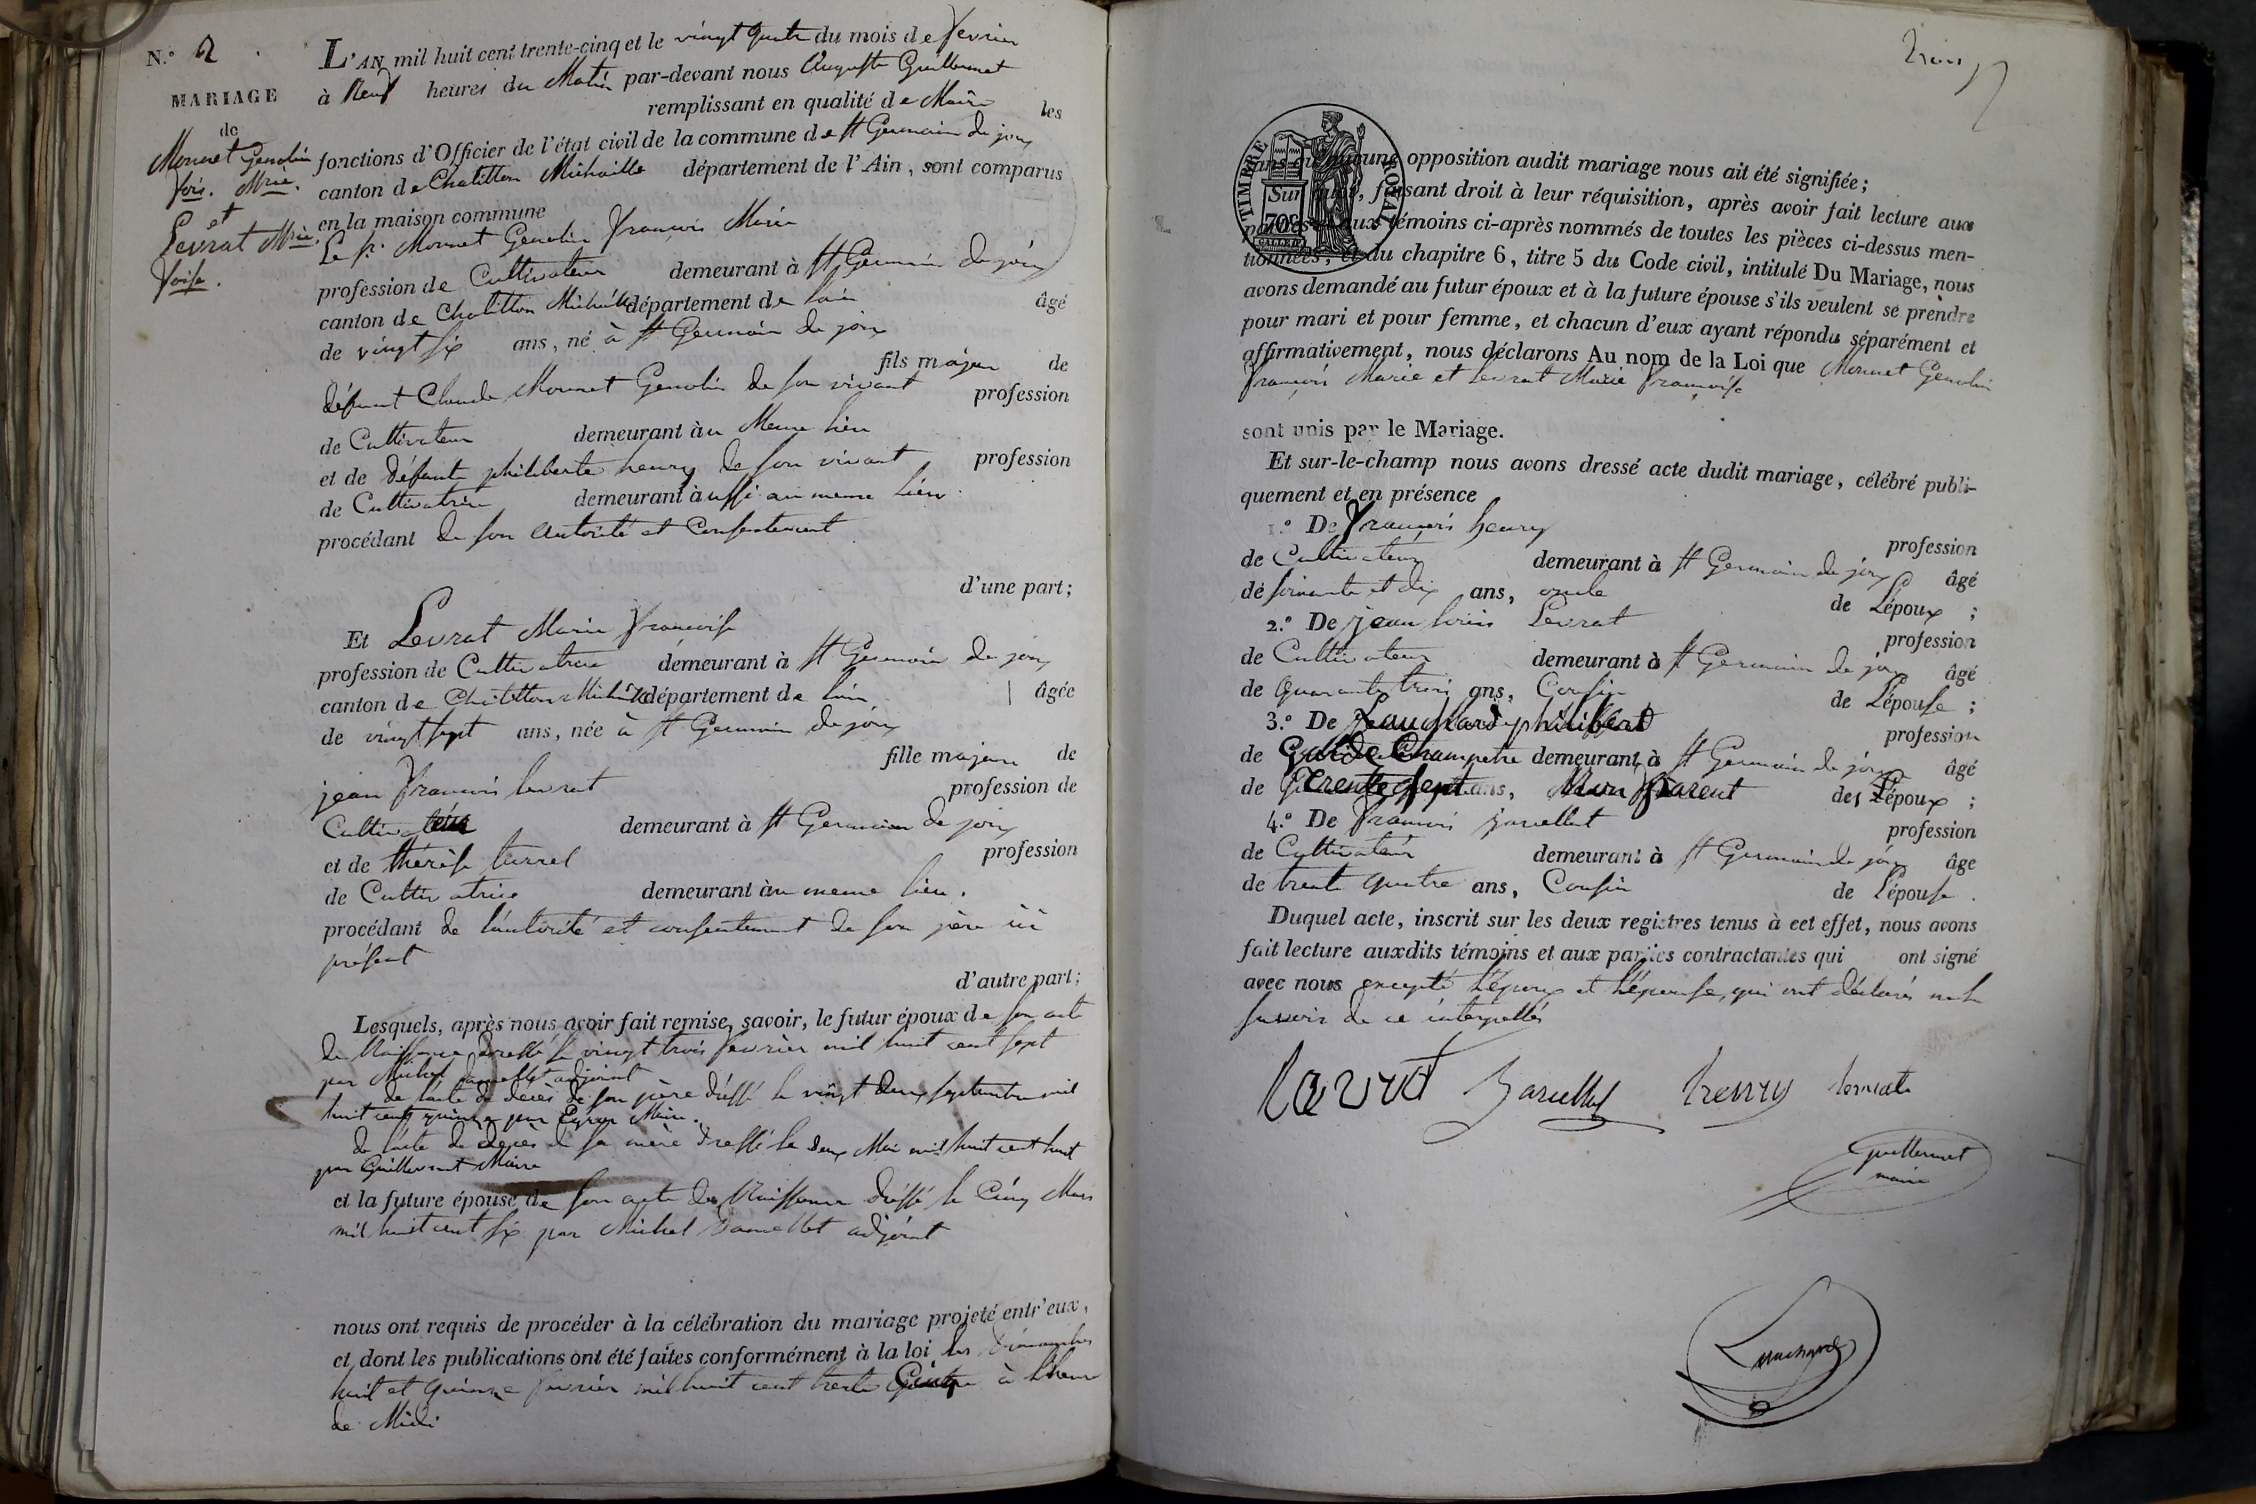 N.º 2
MARIAGE
de
Monnet Genolin
frois. Mrie.
et
Levrat Mrie.
foise.
L'AN mil huit cent trente-cinq et le vingt quatre du mois de fevrier
à Neuf heures du Matin par-devant nous Auguste Guillermet
remplissant en qualité de Maire les
fonctions d'Officier de l'état civil de la commune de St Germain de joux
canton de Chatillon Michaille département de l'Ain, sont comparus
en la maison commune
Le sr. Monnet Genolin françois Marie
profession de Cultivateur demeurant à St Germain de joux
canton de Chatillon Michaille département de lain âgé
de vingt six ans, né à St Germain de joux
fils majeur de
défunt Claude Monnet Genolin de son vivant profession
de Cultivateur demeurant àu Meme lieu
et de défunte philiberte henry de son vivant profession
de Cultivatrice demeurant àussi au meme lieu.
procédant de son autorité et Consentement
d'une part;
Et Levrat Marie françoise
profession de Cultivatrice demeurant à St Germain de joux
canton de Chatillon Michaille département de lain âgée
de vingt sept ans, née à St Germain de joux
fille majeure de
jean françois levrat profession de
Cultivateur demeurant à St Germain de joux
et de thérèse turrel profession
de Cultivatrice demeurant àu meme lieu.
procédant de lautorité et consentement de son père ici
présent
d'autre part;
Lesquels, après nous avoir fait remise, savoir, le futur époux de son acte
de Naissance dressé le vingt trois fevrier mil huit cent sept
par Michel adjoint
de lacte de décès de son père dréssé le vingt deux septembre mil
huit cent quinze par Maire.
de lacte de décès de sa mère dressé le deux Mai mil huit cent huit
par Guillermet Maire
et la future épouse de son acte de Naissance dréssé le Cinq Mars
mil huit cent six par Michel adjoint
nous ont requis de procéder à la célébration du mariage projeté entr'eux,
et dont les publications ont été faites conformément à la loi les dimanches
huit et quinze fevrier mil huit cent trente Cinq à lheure
de Midi
trois
TIMBRE ROYAL
70c
sans qu'aucune opposition audit mariage nous ait été signifiée;
Sur quoi, faisant droit à leur réquisition, après avoir fait lecture aux
parties et aux témoins ci-après nommés de toutes les pièces ci-dessus men-
tionnées, et du chapitre 6, titre 5 du Code civil, intitulé Du Mariage, nous
avons demandé au futur époux et à la future épouse s'ils veulent se prendre
pour mari et pour femme, et chacun d'eux ayant répondu séparément et
affirmativement, nous déclarons Au nom de la Loi que Monnet Genolin
françois Marie et Levrat Marie françoise
sont unis par le Mariage.
Et sur-le-champ nous avons dressé acte dudit mariage, célébré publi-
quement et en présence
1.º De françois henry profession
de Cultivateur demeurant à St Germain de joux âgé
de soixante et dix ans, oncle de Lépoux;
2.º De jean louis Levrat profession
de Cultivateur demeurant à St Germain de joux âgé
de quarante trois ans, Cousin de Lépouse;
3.º De Lauchard philibert profession
de Garde Champetre demeurant à St Germain de joux âgé
de trente sept ans, Non Parent des Lépoux;
4.º De françois profession
de Cultivateur demeurant à St Germain de joux âge
de trente quatre ans, Cousin de Lépouse.
Duquel acte, inscrit sur les deux registres tenus à cet effet, nous avons
fait lecture auxdits témoins et aux parties contractantes qui ont signé
avec nous excepté Lépoux et Lépouse, qui ont déclarés ne le
savoir de ce interpellés
Levrat henry levrat
Guillermet
maire
Lauchard